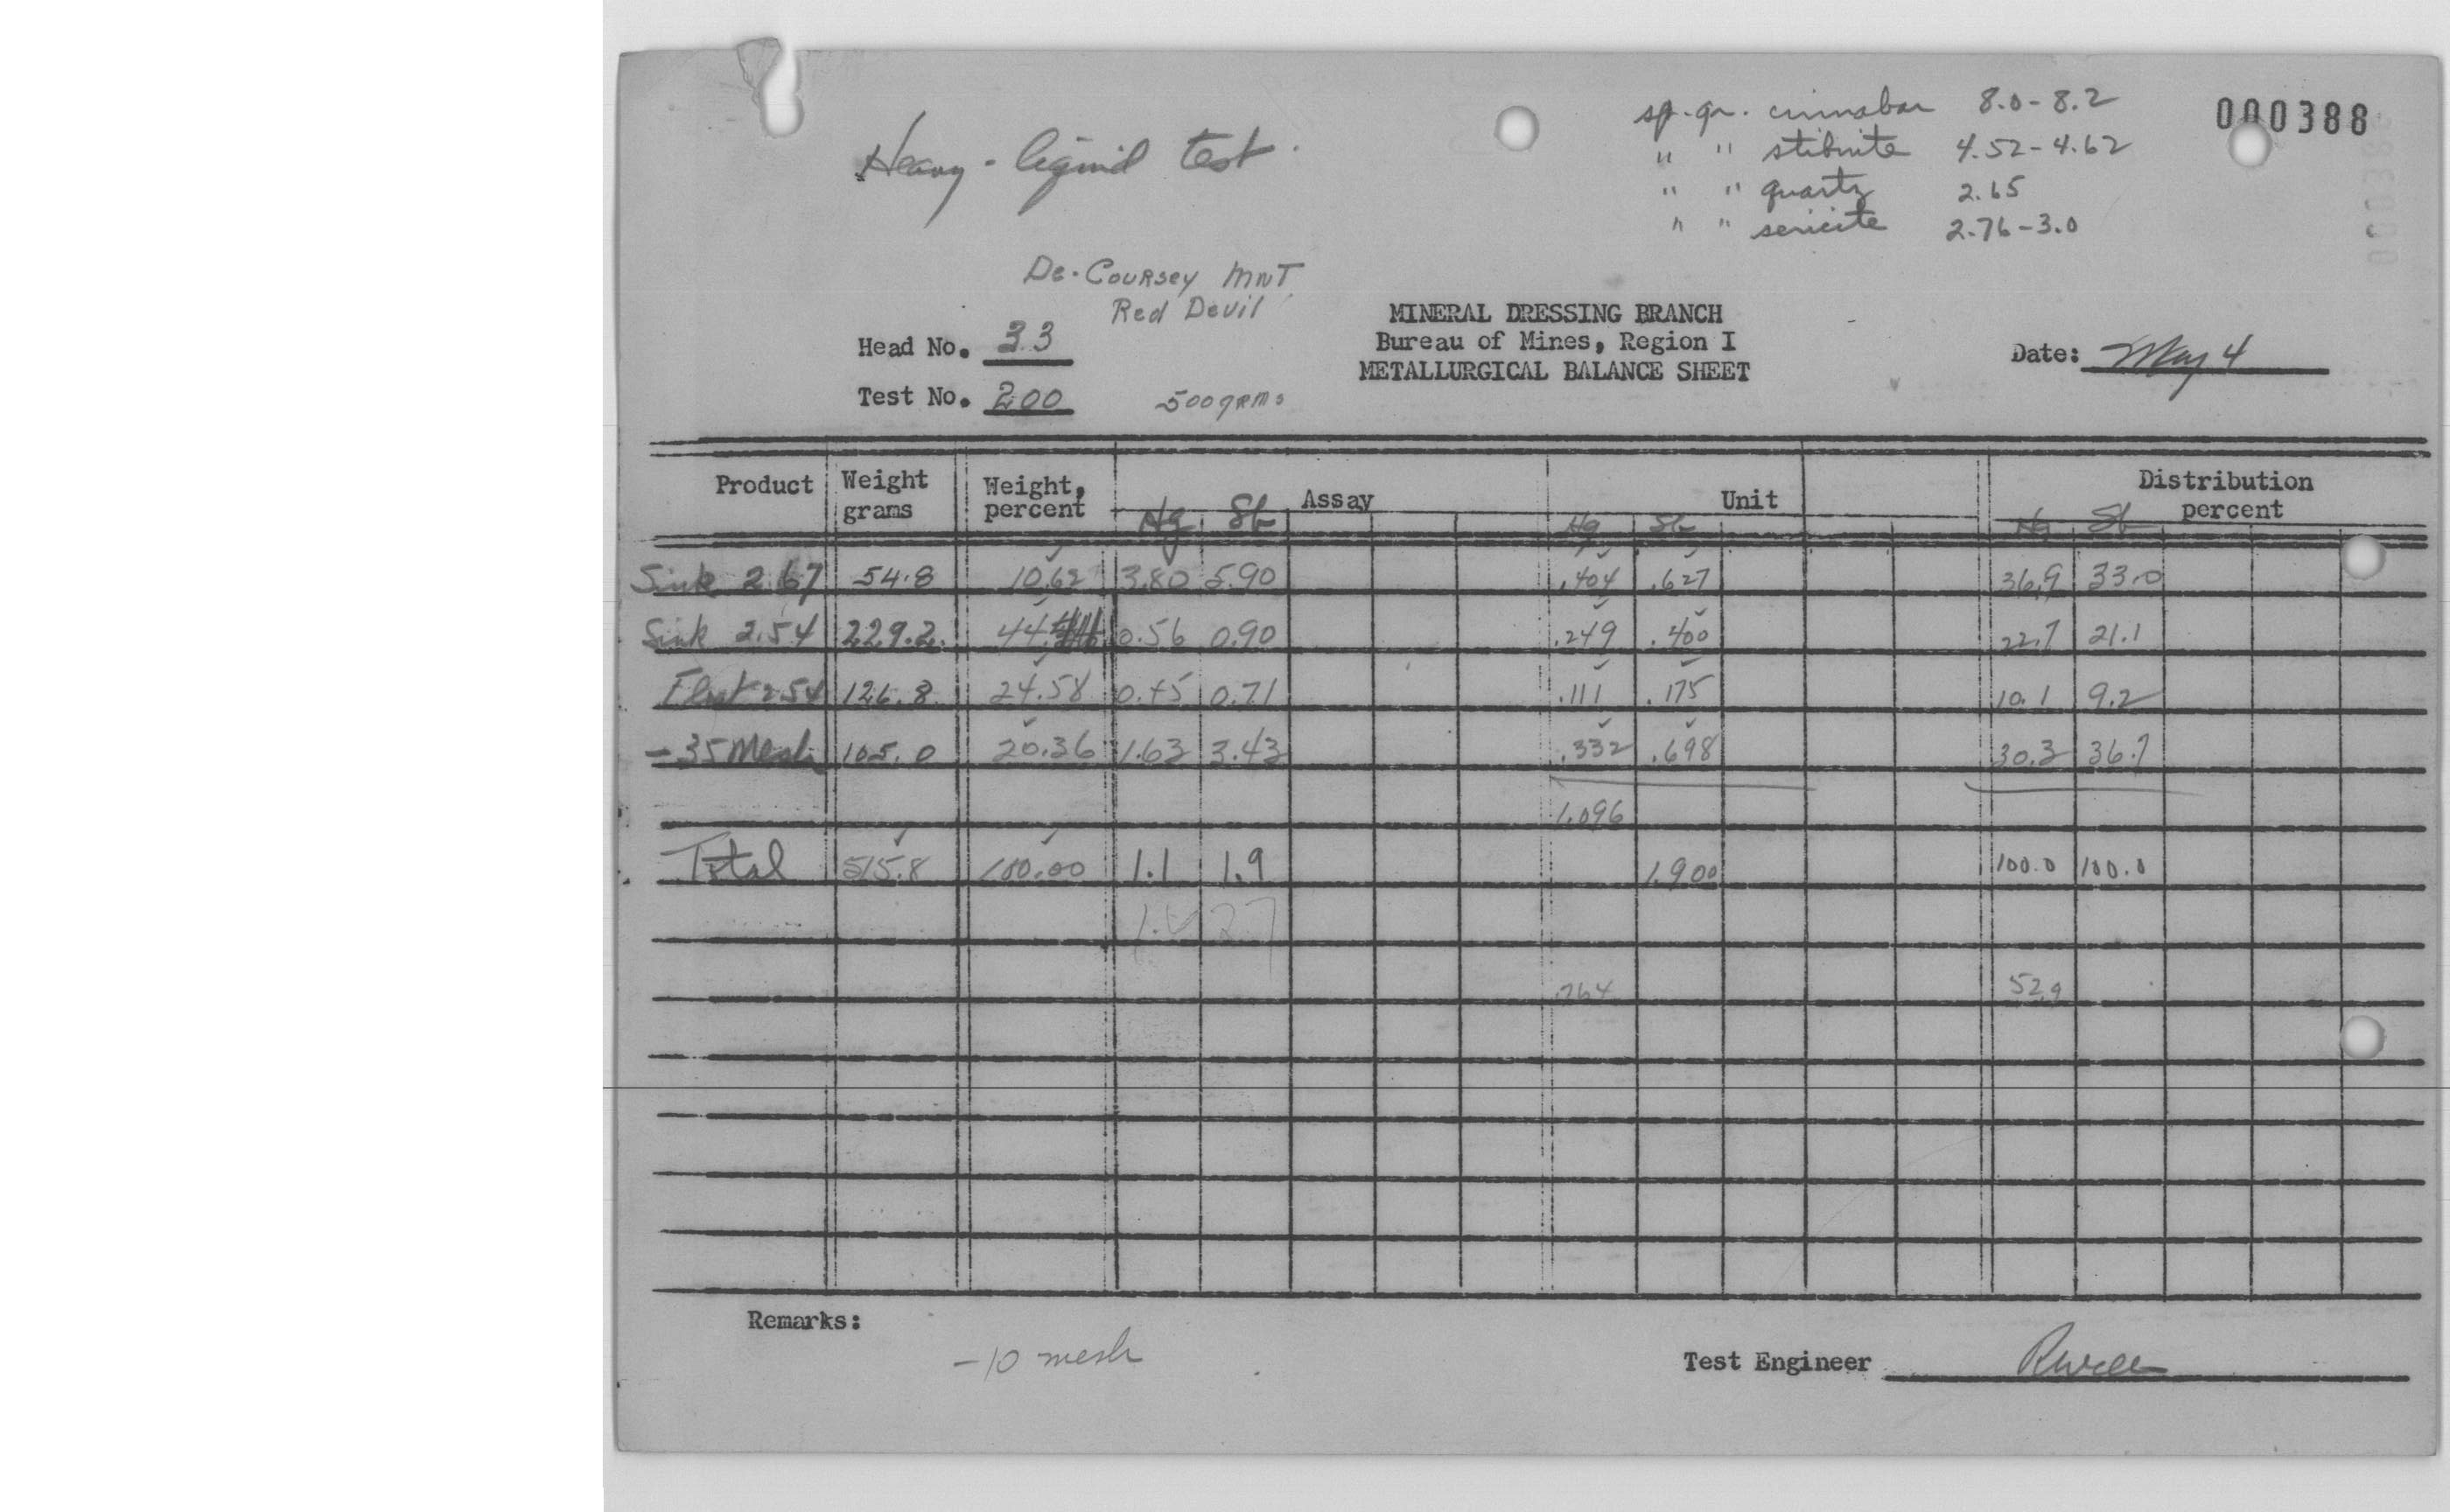 000388
sp. gr. cinnabar 8.0-8.2
" " stibnite 4.52-4.62
" " quartz 2.65
" " sericite 2.76-3.0
Heavy-liquid test.
De-Coursey MNT.
Red Devil
Head No. 33
Test No. 200 500 grms
MINERAL DRESSING BRANCH
Bureau of Mines, Region I
METALLURGICAL BALANCE SHEET
Date: May 4
Product Weight grams Weight, percent Assay Unit Distribution percent
Hg Sb Hg Sb Hg Sb
Sink 2.67 54.8 10.62 3.80 5.90 .404 .627 36.9 33.0
Sink 2.54 229.2 44. 0.56 0.90 .249 .400 22.7 21.1
Float 2.54 126.8 24.58 0.45 0.71 .111 .175 10.1 9.2
-35 Mesh 105.0 20.36 1.63 3.43 .332 .698 30.3 36.7
1.096
Total 515.8 100.00 1.1 1.9 1.900 100.0 100.0
2.7
.764 52.9
Remarks:
-10 mesh
Test Engineer